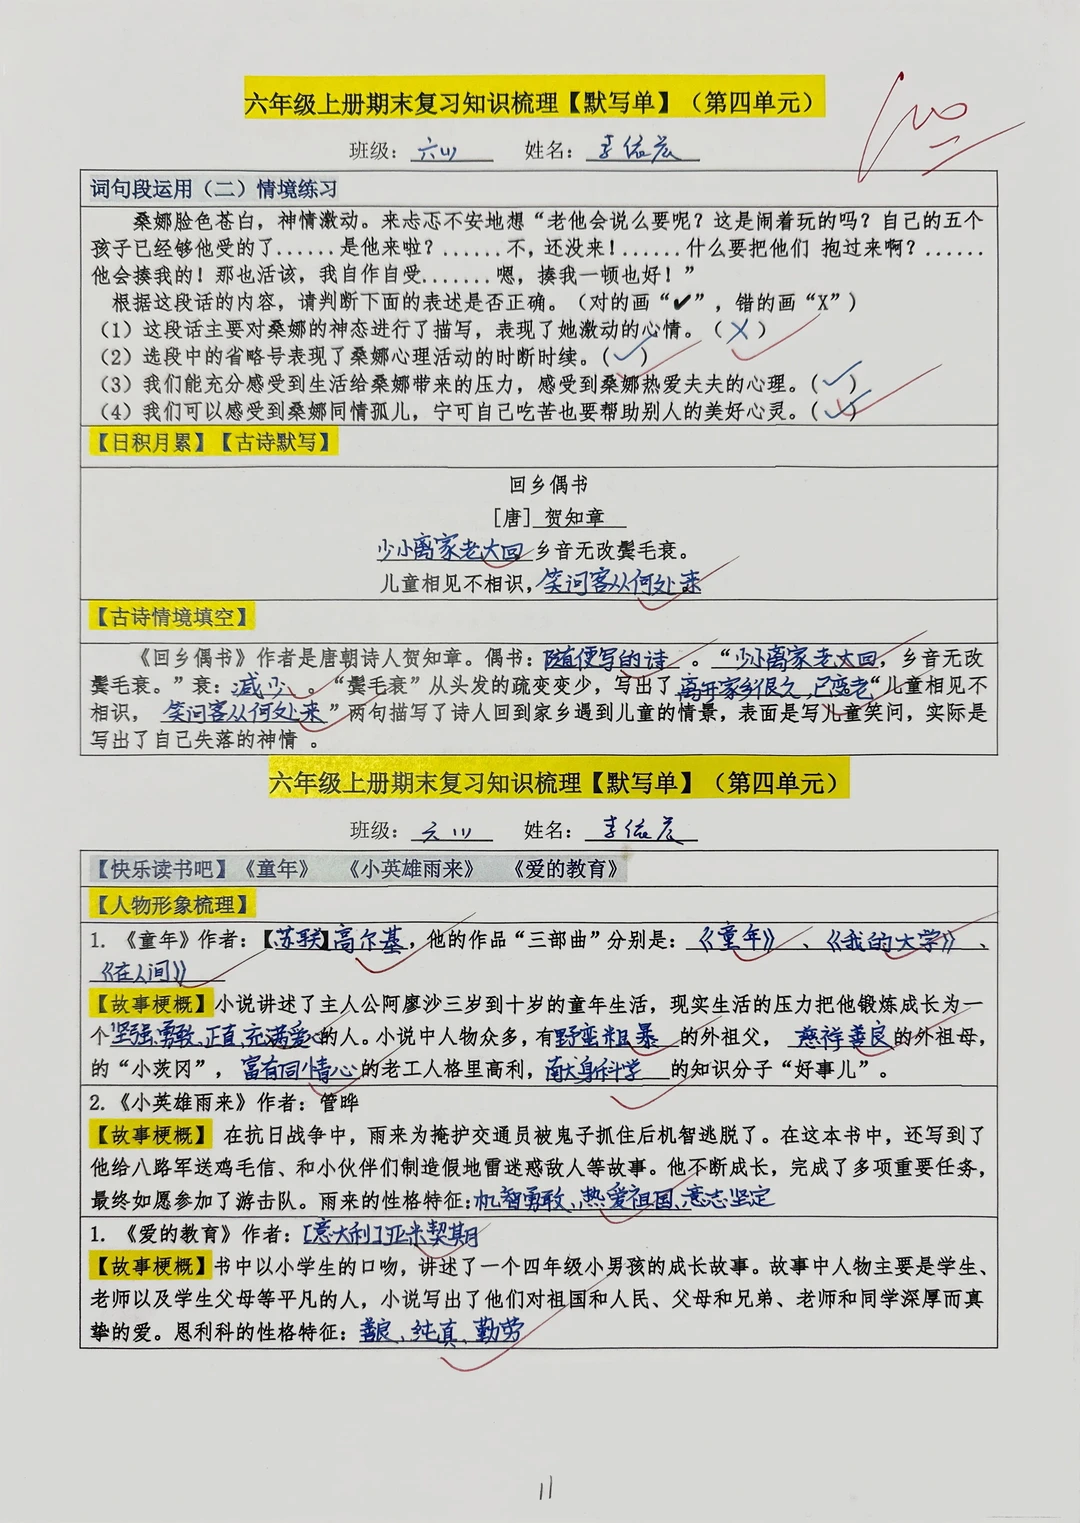 六年级上册期末复习知识梳理【默写单】（第四单元）
100
班级：六(1) 姓名：李依宸
词句段运用（二）情境练习
桑娜脸色苍白，神情激动。来忐忑不安地想“老他会说么要呢？这是闹着玩的吗？自己的五个
孩子已经够他受的了......是他来啦？......不，还没来！......什么要把他们 抱过来啊？......
他会揍我的！那也活该，我自作自受.......嗯，揍我一顿也好！”
根据这段话的内容，请判断下面的表述是否正确。（对的画“✔”，错的画“X”）
（1）这段话主要对桑娜的神态进行了描写，表现了她激动的心情。（X）
（2）选段中的省略号表现了桑娜心理活动的时断时续。（✓）
（3）我们能充分感受到生活给桑娜带来的压力，感受到桑娜热爱夫夫的心理。（✓）
（4）我们可以感受到桑娜同情孤儿，宁可自己吃苦也要帮助别人的美好心灵。（✓）
【日积月累】【古诗默写】
回乡偶书
［唐］ 贺知章
少小离家老大回 乡音无改鬓毛衰。
儿童相见不相识，笑问客从何处来
【古诗情境填空】
《回乡偶书》作者是唐朝诗人贺知章。偶书：随便写的诗 。“少小离家老大回，乡音无改
鬓毛衰。”衰：减少 。“鬓毛衰”从头发的疏变变少，写出了离开家乡很久，已变老“儿童相见不
相识， 笑问客从何处来”两句描写了诗人回到家乡遇到儿童的情景，表面是写儿童笑问，实际是
写出了自己失落的神情 。
六年级上册期末复习知识梳理【默写单】（第四单元）
班级：六(1) 姓名：李依宸
【快乐读书吧】《童年》 《小英雄雨来》 《爱的教育》
【人物形象梳理】
1. 《童年》作者：【苏联】高尔基，他的作品“三部曲”分别是：《童年》 、《我的大学》 、
《在人间》
【故事梗概】小说讲述了主人公阿廖沙三岁到十岁的童年生活，现实生活的压力把他锻炼成长为一
个坚强、勇敢、正直、充满爱心的人。小说中人物众多，有野蛮粗暴 的外祖父， 慈祥善良的外祖母，
的“小茨冈”， 富有同情心的老工人格里高利，献身科学 的知识分子“好事儿”。
2.《小英雄雨来》作者：管晔
【故事梗概】 在抗日战争中，雨来为掩护交通员被鬼子抓住后机智逃脱了。在这本书中，还写到了
他给八路军送鸡毛信、和小伙伴们制造假地雷迷惑敌人等故事。他不断成长，完成了多项重要任务，
最终如愿参加了游击队。雨来的性格特征：机智勇敢、热爱祖国、意志坚定
1. 《爱的教育》作者：[意大利]亚米契斯
【故事梗概】书中以小学生的口吻，讲述了一个四年级小男孩的成长故事。故事中人物主要是学生、
老师以及学生父母等平凡的人，小说写出了他们对祖国和人民、父母和兄弟、老师和同学深厚而真
挚的爱。恩利科的性格特征：善良、纯真、勤劳
11